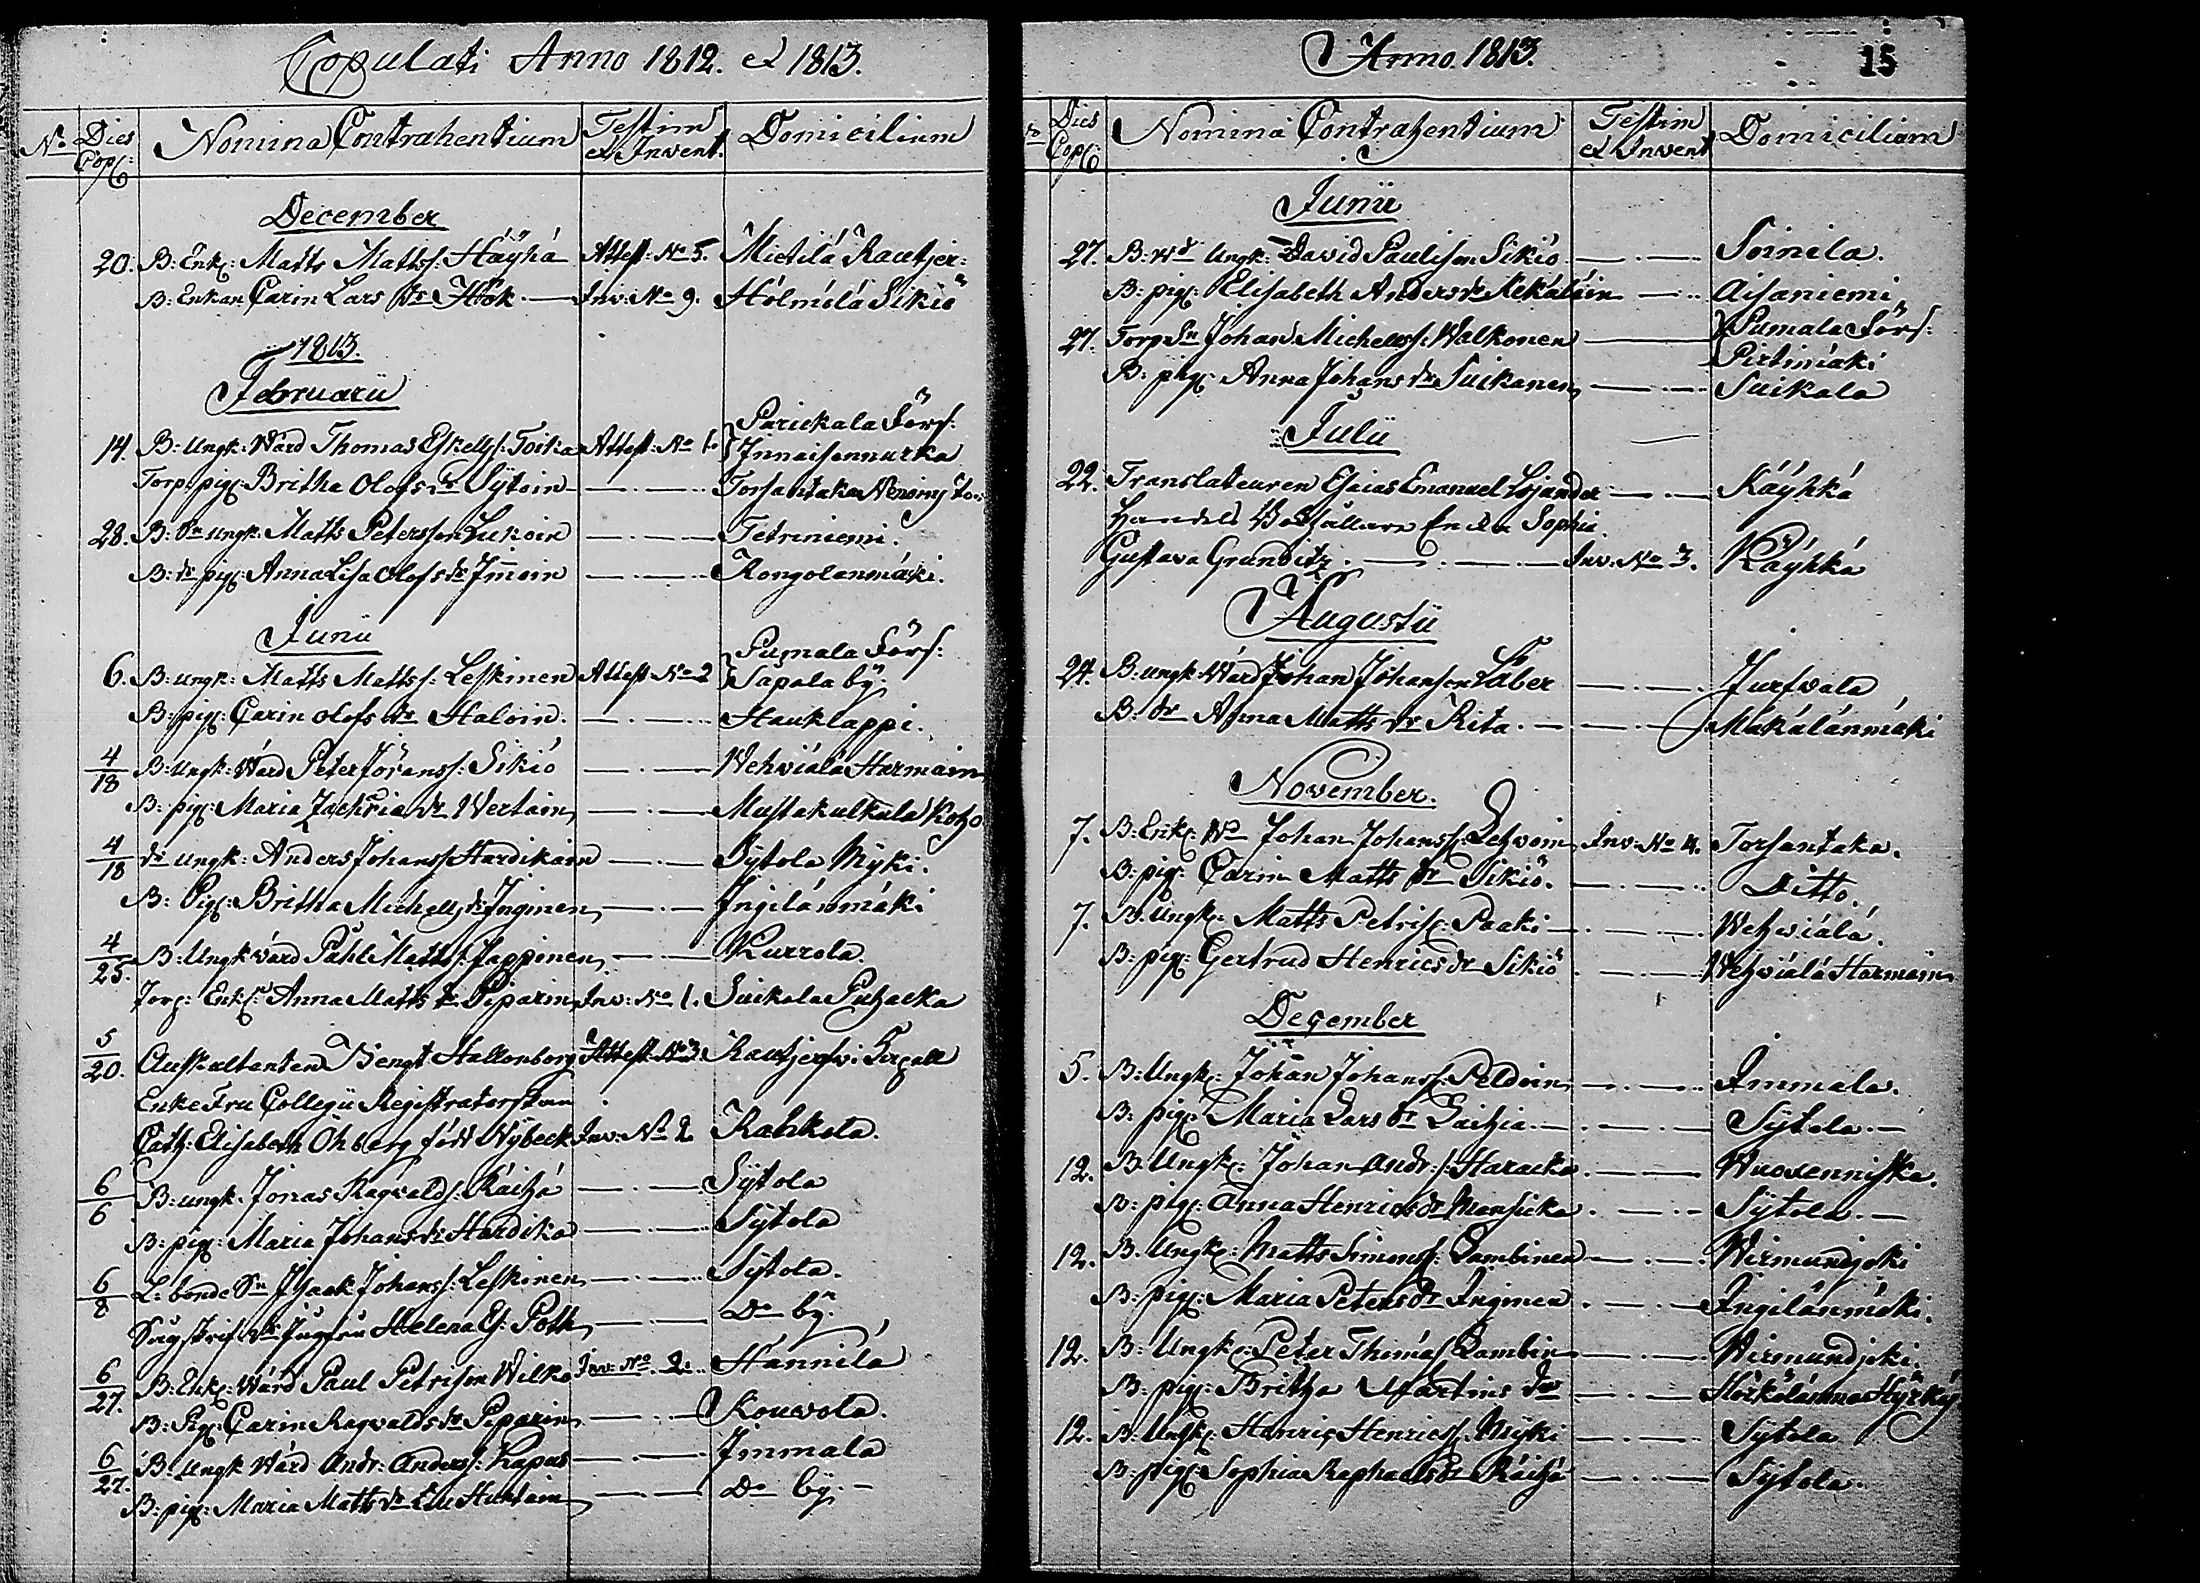 Copulati Anno 1812. et 1813.
No Dies Cop: Nomina Contrahentium Testim et Invent. Domicilium
December
20. B: Enkl: Matts Mattss: Häyhä Attest: No 5. Mietilä Rautjer:
B: Enkan Carin Lars dr Hök Inv: No 9. Hölmölä Sikiö
1813.
Februarii
Parickala Förs:
14. B: Ungk: Wärd Thomas Eskelss: Toika Attest: No 1. Innaisennurka
Torp: pig: Britha Olofs dr Sÿtoin Torsantaka
28. B: Sn Ungk: Matts Petersson Lukoin Tetriniemi.
B: dr pig: Anna Lisa Olofs dr Im̄oin Kongolanmäki.
Junii
Pumala Förs:
6. B: Ungk: Matts Mattss: Leskinen Attest No 2 Sapala bÿ.
B: pig: Carin Olofs dr Haloin. Hauklappi.
4/18 B: Ungk: Wärd Peter Jöranss: Sikiö Wehwiälä Harmain
B: pig: Maria Zachria dr Wertain Mustakulkula Kotjo
4/18 dr Ungk: Anders Johanss: Hardikain Sÿtola Mÿki.
B: Pig: Britha Michells dr Inginen Ingilänmäki
4/25. B: Ungk wärd Påhl Matts: Jappinen Kurrola.
Torp: Enk: Anna Matts dr Piparin Inv: No 1. Suikala Puhacka
5/20. Auskultanten Bengt Hallonborg Attest. No 3. Rautjerfwi
Enke Fru Collegii Registratorskan
Cath: Elisabeth Ohberg född Nÿbeck Inv: No 2 Kahkola.
6/6 B: Ungk. Jonas Ragwalds: Räihä Sÿtola
B: pig: Maria Johans dr Hardika Sÿtola
6/8 L: bonde Sn Isaak Johanss: Leskinen Sÿtola.
Jungfru Helena E: Poth Do bÿ.
6/27. B: Enk: Wärd Paul Petrison Wilko Inv: No 2: Hannila
B: Pig: Carin Ragwalds dr Piparin Kouwola.
6/27. B: Ungk Wärd Andr: Anders: Kapas Immala
B: pig: Maria Matts dr Hurtain Do bÿ.
Anno 1813. 15
No Dies Cop: Nomina Contrahentium Testim et Invent Domicilium
Junii
27. B: Wd Ungk: David Paulison Sikiö Soinila.
B: pig: Elisabeth Anders dr Rekäläin Aisaniemi
27. Torp Sn Johan Michelss: Walkonen Pumala Förs:
Pirtimäki
B: pig: Anna Johans dr Suikanen Suikala
Julii
22. Translateuren Esaias Emanuel Käÿhkä
Handels Enka Sophia
Gustava Granditz. Inv: No 3. Käÿhkä
Augustii
24. B: Ungk: Wärd Johan Johanson Läber Jurfwala
B: dr Anna Matts dr Rita. Mäkälänmäki
November.
7. B: Enk: Wd Johan Johanss: Lehwoin Inv: No 4. Torsantaka.
B: pig: Carin Matts dr Sikiö. Ditto.
7. B: Ungk: Matts Petris: Paaki Wehwiälä.
B: pig: Gertrud Henrics dr Sikiö Wehwiälä Harmain
December
5. B: Ungk: Johan Johanss: Peldoin Immala.
B: pig: Maria Lars dr Laihia. Sÿtola.
12. B: Ungk: Johan Andr: s: Haracka. Wuoxenniska.
B: pig: Anna Henrics dr Mansicka. Sÿtola.
12. B. Ungk: Matts Simonss: Lambinen Wirmundjoki
B: pig: Maria Peters dr Inginen Ingilänmäki.
12. B: Ungk: Peter Thomas: Lambin Wirmundjoki.
B: pig: Britha Martins dr
12. B: Ungk: Henric Henricss: Mÿki Sÿtola
B: pig: Sophia Raphaels dr Räihä Sÿtola.